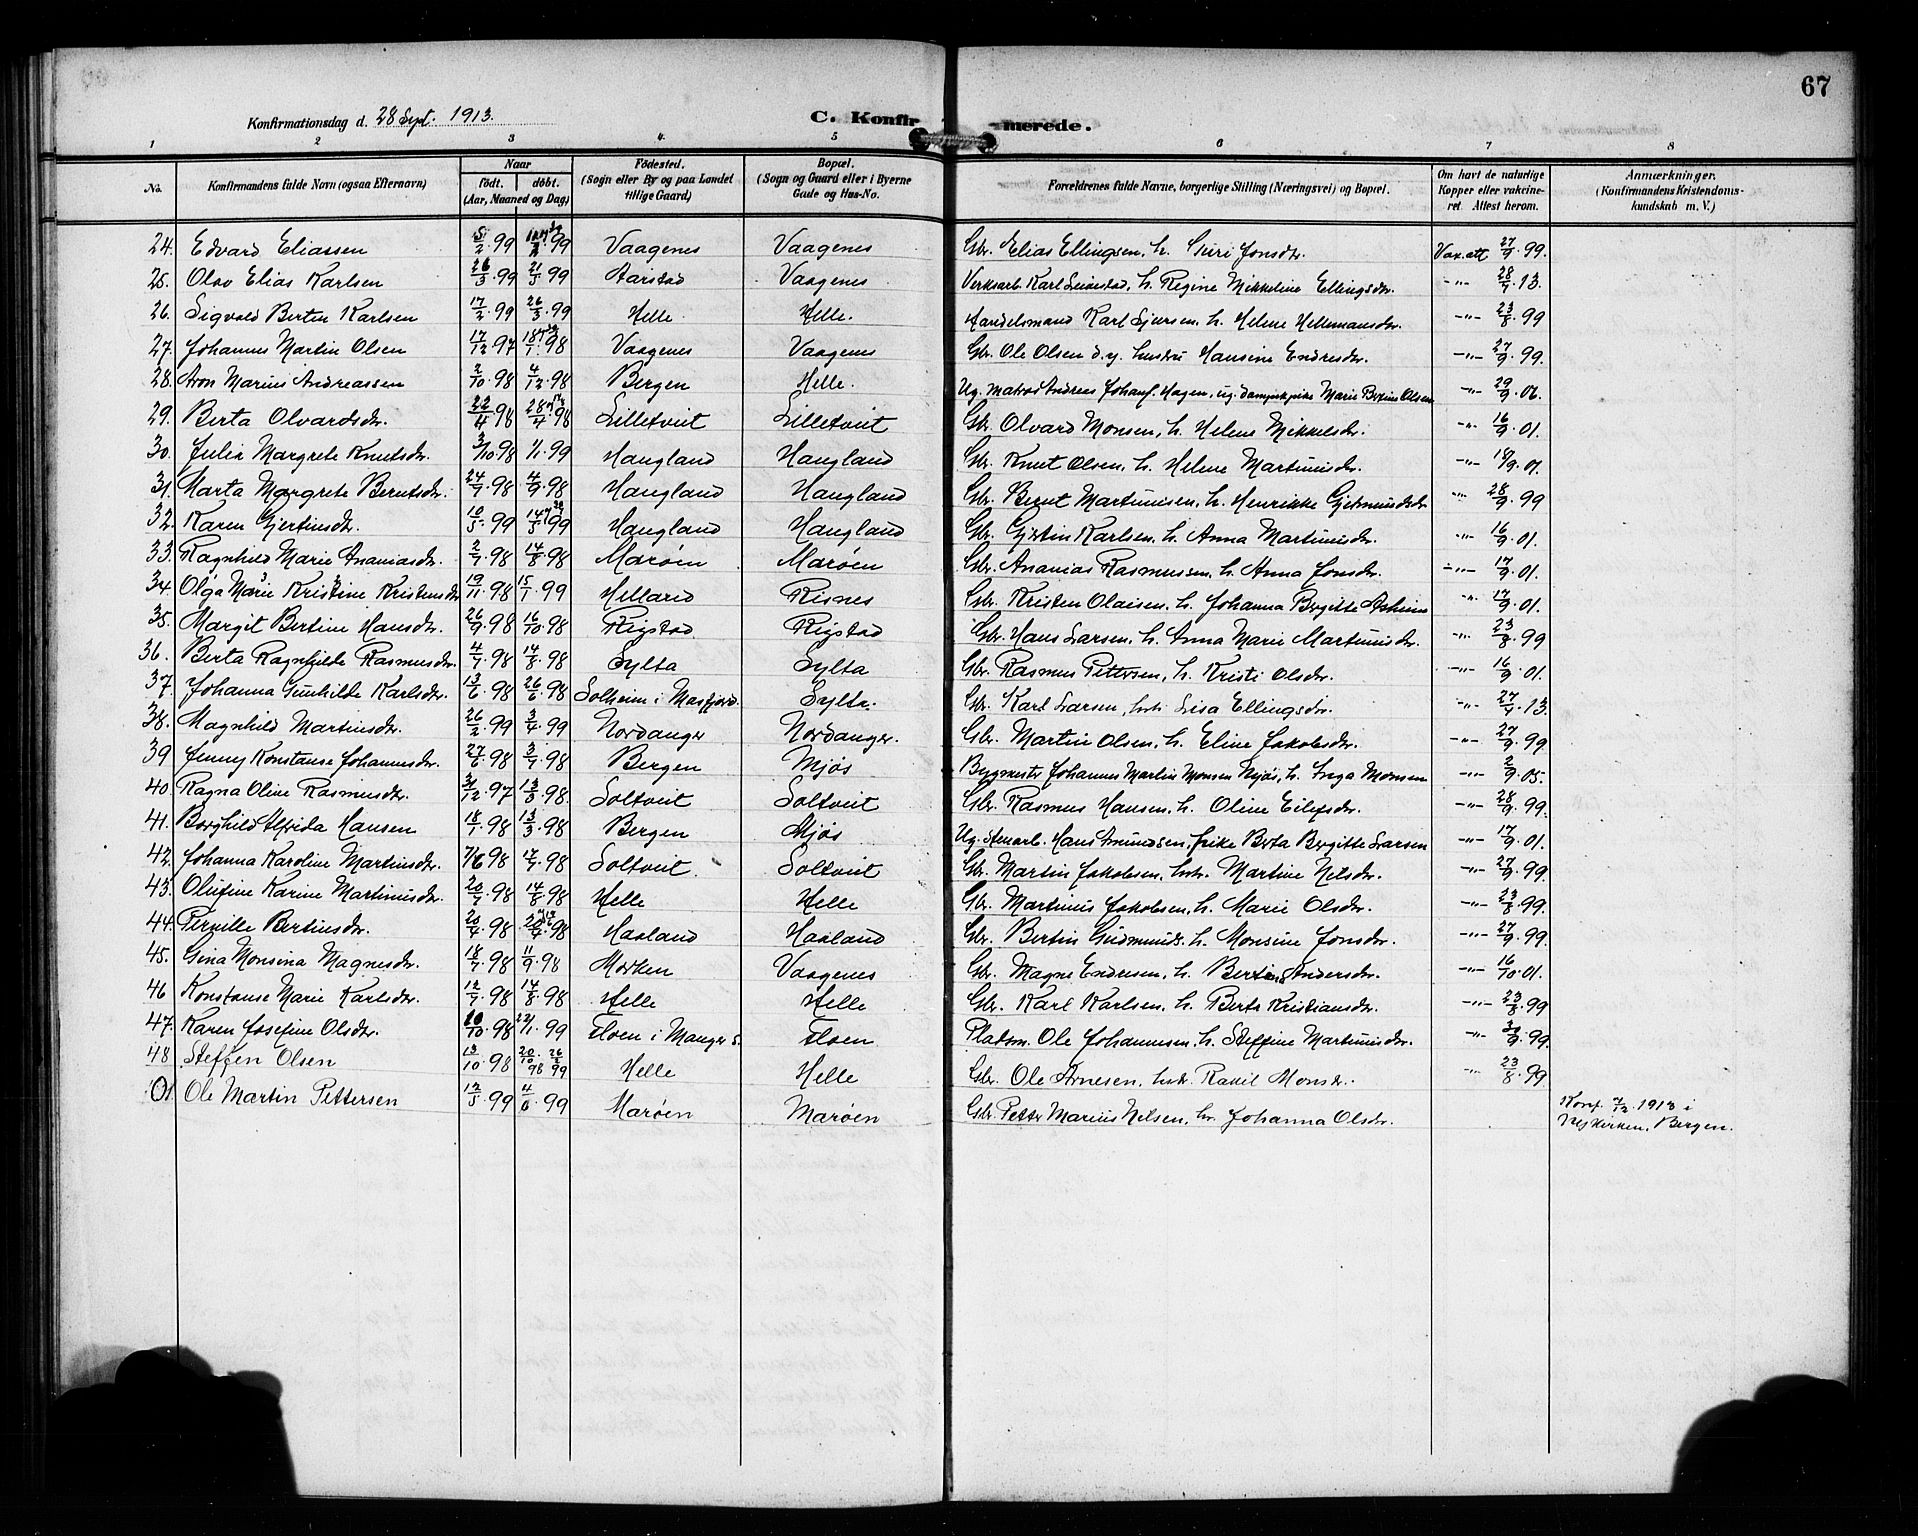 67
Konfirmationsdag d. 28 Sept. 1913. C. Konfirmerede.
1 2 3 4 5 6 7 8
No. Konfirmandens fulde Navn (ogsaa Efternavn) Naar født. døbt. (Aar, Maaned og Dag) Fødested. (Sogn eller By og paa Landet tillige Gaard) Bopæl. (Sogn og Gaard eller i Byerne Gade og Hus-No. Forældrenes fulde Navne, borgerlige Stilling (Næringsvei) og Bopæl. Om havt de naturlige Kopper eller vakcineret. Attest herom. Anmærkninger. (Konfirmandens Kristendomskundskab m. V.)
24. Edvard Eliassen 5/2 99 99 Vaagenes Vaagenes Gbr. Elias Ellingsen, h. Siri Jonsdr. Vax. att 27/9. 99.
25. Olav Elias Karlsen 26/3. 99 21/5 99 Aarstad Vaagenes Verksarb. Karl h. Regine Mikkeline Ellingsdr. -"- 28/9. 13.
26. Sigvald Bertin Karlsen 17/2. 99 26/3. 99 Helle. Helle. Handelsmand Karl Sjursen, h. Helene Hellemansdr. -"- 23/8. 99
27. Johannes Martin Olsen 17/12. 97 18/1. 98 Vaagenes Vaagenes Gbr. Ole Olsen d.y. hustru Hansine Endresdr. -"- 27/9. 99.
28. Aron Marius Andreassen 2/10. 98 4/12. 98 Bergen Helle. Ug. Matros Andreas Johans. Hagen, ug. Marie Bertine Olsen -"- 29/9. 06.
29. Berta Olvardsdr. 22/4. 98 28/4 98 Lilletveit Lilletveit Gbr. Olvard Monsen, h. Helene Mikkelsdr. -"- 16/9. 01.
30. Julia Margrete Knutsdr. 3/10. 98 1/1. 99 Haugland Haugland Gbr. Knut Olsen, h. Helene Martinusdr. -"- 18/9. 01.
31. Marta Margrete Berntsdr. 24/7. 98 4/9. 98 Haugland Haugland Gbr. Bernt Martinusen, h. Henrikke Gjermundsdr -"- 28/9. 99
32. Karen Gjertinsdr. 10/5. 99 14/5 99 Haugland Haugland Gbr. Gjertin Karlsen, h. Anna Martinusdr. -"- 16/9. 01.
33. Ragnhild Marie Ananiasdr. 2/7. 98 14/8. 98 Marøen Marøen Gbr. Ananias Rasmussen, h. Anna Jonsdr. -"- 17/9. 01.
34. Olga Marie Kristine Kristensdr 19/11. 98 15/1. 99 Helland Risnes Gbr. Kristen Olaisen, h. Johanna Birgitte -"- 17/9. 01.
35. Margit Bertine Hansdr. 26/9. 98 16/10. 98 Rigstad Rigstad Gbr. Hans Larsen, h. Anna Marie Martinusdr. -"- 23/8. 99
36. Berta Ragnhilde Rasmusdr. 4/7. 98 14/8. 98 Sylta Sylta Gbr. Rasmus Pettersen, h. Kristi Olsdr. -"- 16/9. 01.
37. Johanna Gunhilde Karlsdr. 13/6. 98 26/6. 98 Solheim i Masfjord. Sylta. Gbr. Karl Larsen, hstr. Lisa Ellingsdr. -"- 27/4. 13.
38. Magnhild Martinsdr. 26/2. 99 3/4. 99 Nordanger Nordanger. Gbr. Martin Olsen, h. Eline Jakobsdr. -"- 27/9. 99
39 Jenny Konstanse Johannesdr. 27/6. 98 3/7. 98 Bergen Mjøs Bygmestr Johannes Martin Monsen Mjøs, h. Inga Monsen -"- 2/9. 05.
40. Ragna Oline Rasmusdr. 31/12. 97 13/3. 98. Soltveit Soltveit Gbr. Rasmus Hansen, h. Oline Eilefsdr. -"- 28/9. 99.
41. Borghild Alfrida Hansen 18/1. 98 13/3. 98 Bergen Mjøs Ug. Stenarb. Hans Amundsen, pike Berta Birgitte Larsen -"- 17/9. 01.
42. Johanna Karoline Martinsdr. 7/6 98 17/7. 98 Soltveit. Soltveit Gbr. Martin Jakobsen, hstr. Martine Nilsdr. -"- 27/9. 99.
43. Olufine Karine Martinusdr. 20/7. 98 14/8. 98 Helle Helle Gbr. Martinus Jakobsen, h. Marie Olsdr. -"- 23/8. 99.
44. Pernille Bertinsdr. 20/4. 98 98 Haaland Haaland Gbr. Bertin Gudmunds. h. Monsine Jonsdr. -"- 27/9. 99.
45. Gina Monsina Magnesdr. 18/7. 98 11/9. 98 Morken Vaagenes Gbr. Magne Endresen, h. Andersdr. -"- 16/10. 01.
46 Konstanse Marie Karlsdr. 12/7. 98 14/8. 98 Helle Helle Gbr. Karl Karlsen, h. Berta Kristiansdr. -"- 23/8. 99
47. Karen Josefine Olsdr. 10/10. 98 22/1. 99 Floen i Manger s. Floen Pladsm. Ole Johannesen, h. Steffine Martinusdr. -"- 30/9. 99.
48 Steffen Olsen 13/10. 98 20/10. 98 26/2 99 Helle Helle Gbr. Ole Arnesen, hstr. Rakil Monsdr. -"- 23/8. 99
01 Ole Martin Pettersen 12/5. 99 4/6. 99 Marøen Marøen Gbr. Petter Marius Nilsen, hr. Johanna Olsdr. Konf. 7/12. 1913 i
Nykirken, Bergen.